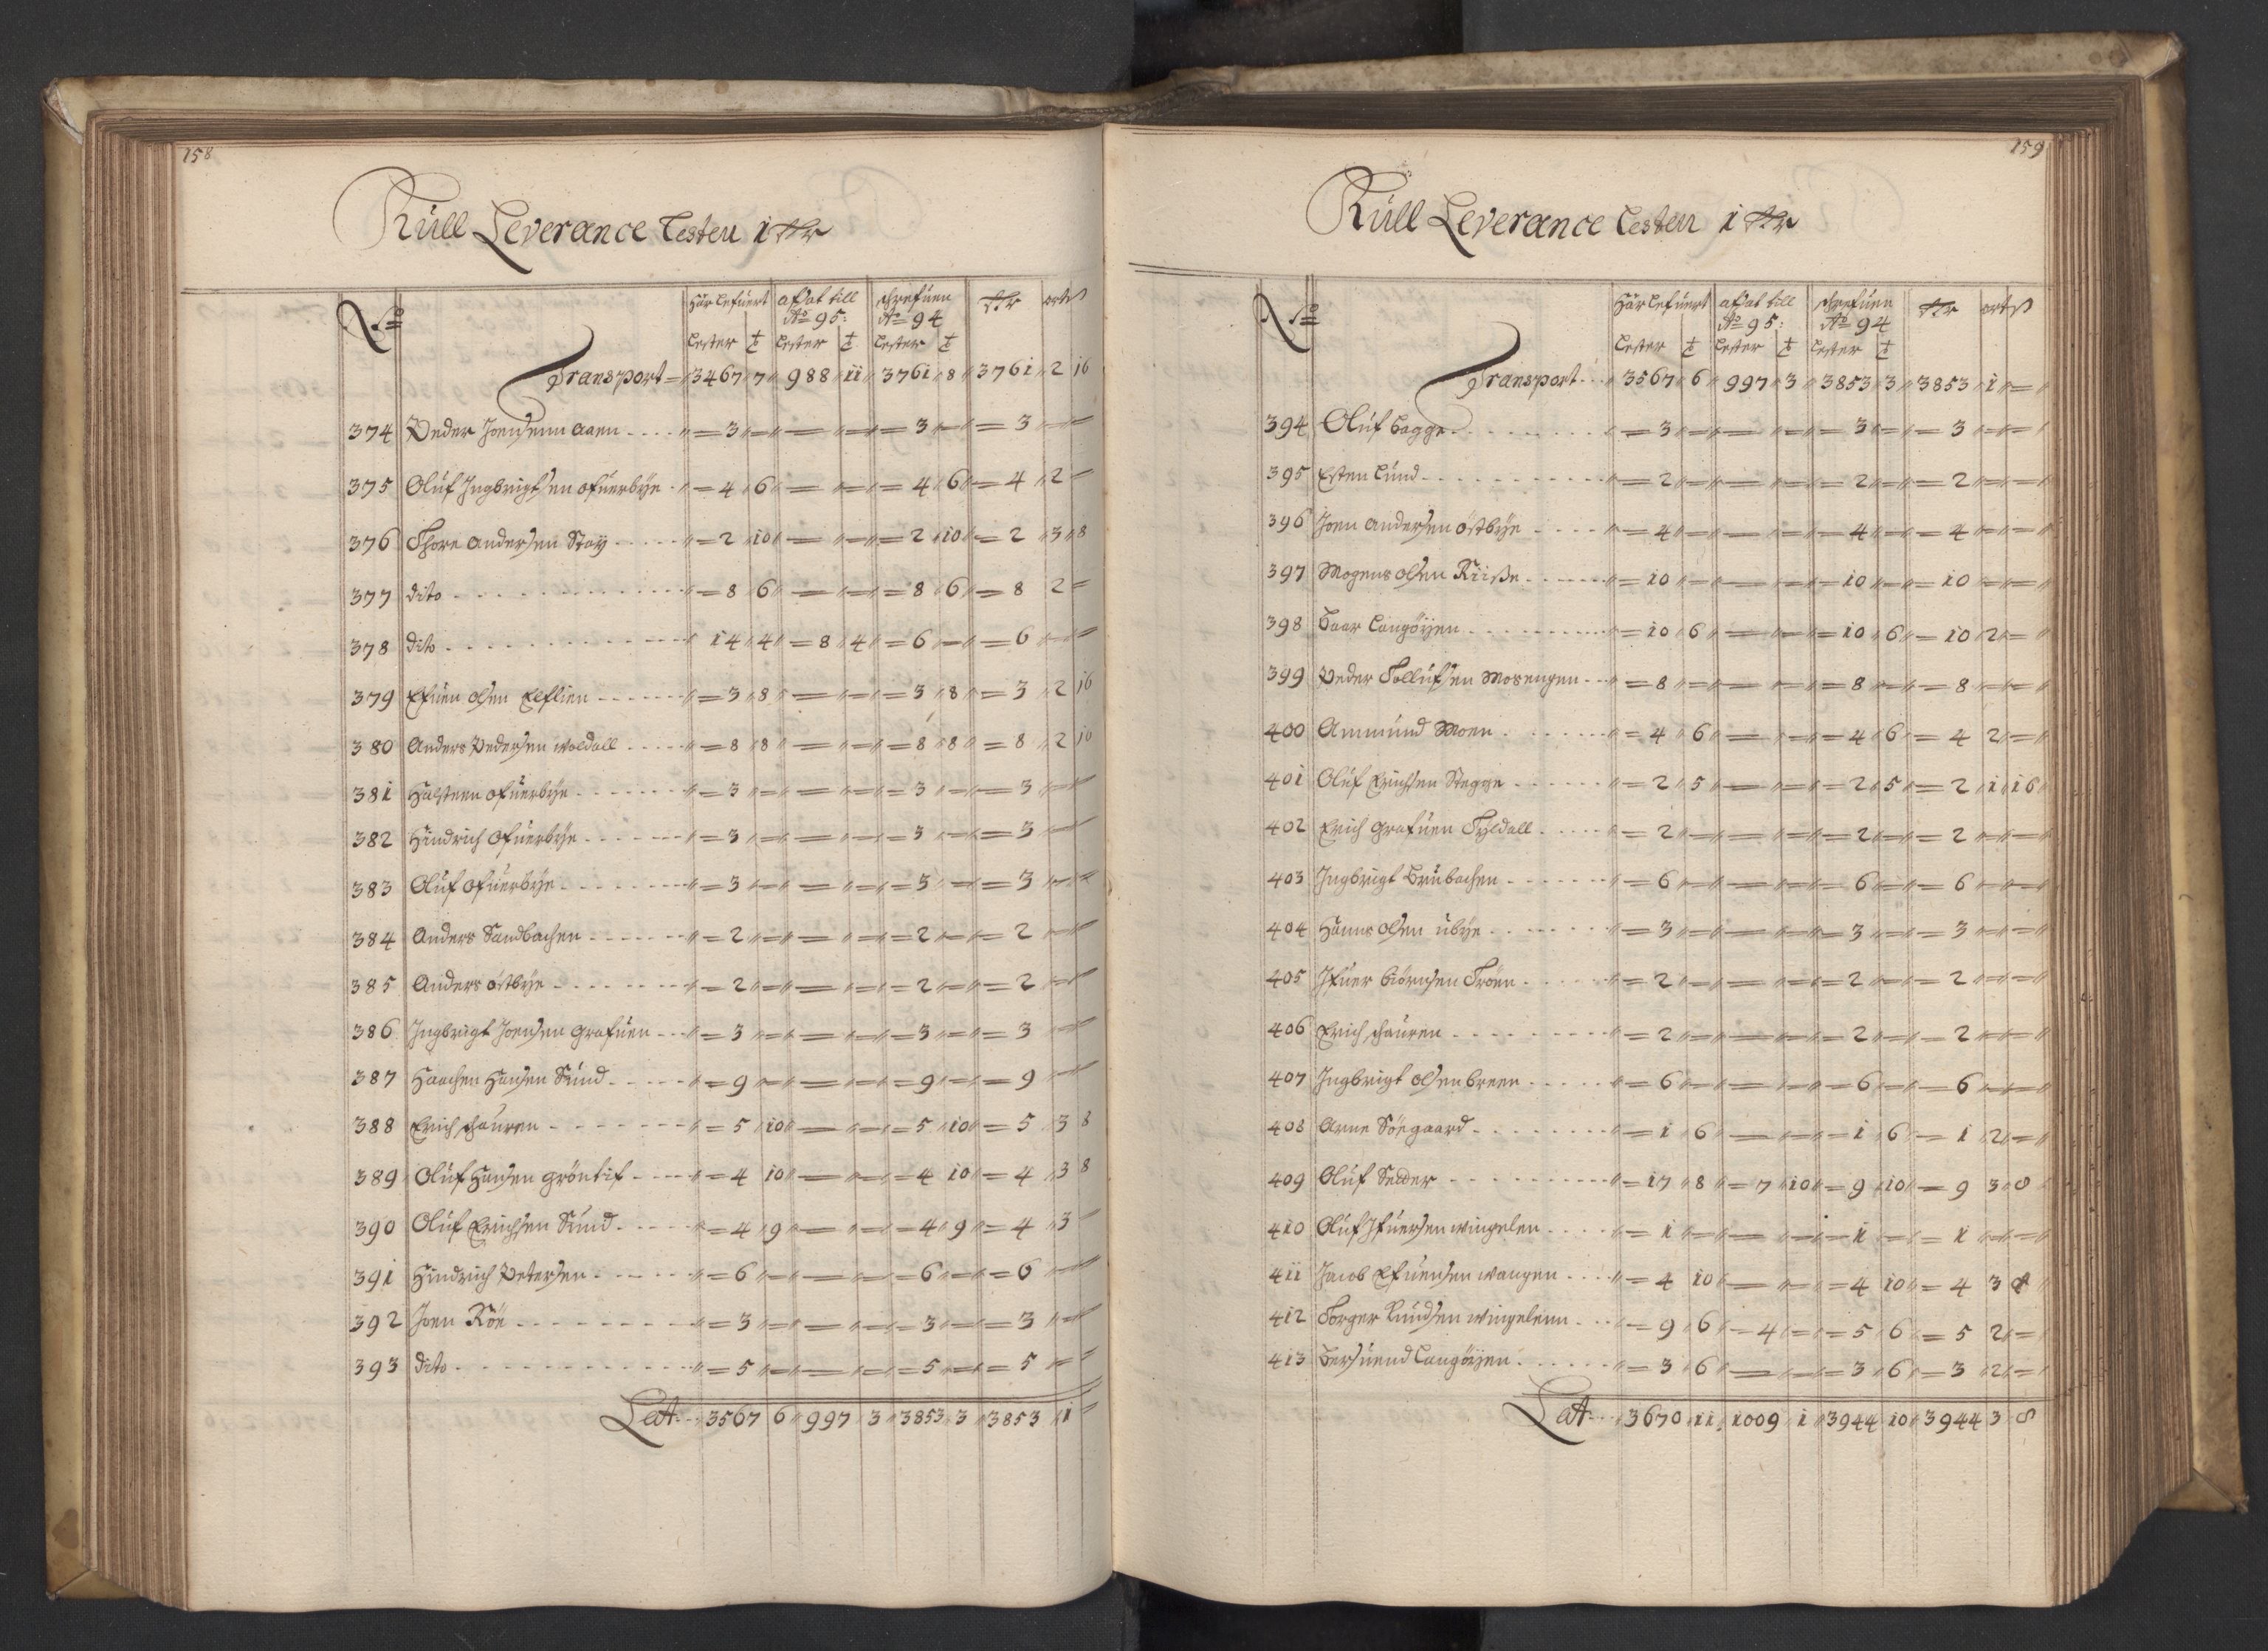 158
Kull Leverance Lesten 1 Rdr
No
Hår lefuert afsat till schrefuen Rdr ort ß
Ao 95: Ao 94
Lester t Lester t Lester t
Transport 3467 7 988 11 3761 8 3761 2 16
374 Peder Joensenn Aaen 3 3 3
375 Oluf Ingbrigtsen ofuerbye 4 6 4 6 4 2
376 Thore Andersen Stoy 2 10 2 10 2 3 8
377 dito 8 6 8 6 8 2
378 dito 14 4 8 4 6 6
379 Efuen olsen Elflien 3 8 3 8 3 2 16
380 Anders Pedersen woldall 8 8 8 8 8 2 16
381 Halsteen ofuerbye 3 3 3
382 Hindrich Ofuerbye 3 3 3
383 Oluf ofuerbye 3 3 3
384 Anders Sandbachen 2 2 2
385 Anders östbye 2 2 2
386 Ingbrigt Joensen Grafuen 3 3 3
387 Haachen Hansen Sund 9 9 9
388 Erich schauren 5 10 5 10 5 3 8
389 Oluf Hansen Gröntif 4 10 4 10 4 3 8
390 Oluf Erichsen Sund 4 9 4 9 4 3
391 Hindrich Petersen 6 6 6
392 Joen Röe 3 3 3
393 dito 5 5 5
Lat 3567 6 997 3 3853 3 3853 1
159
Kull Leverance Lesten 1 Rdr
No
Hår lefuert afsat till schrefuen Rdr ort ß
Ao 95: Ao 94
Lester t Lester t Lester t
Transport 3567 6 997 3 3853 3 3853 1
394 Oluf bagge 3 3 3
395 Esten Lund 2 2 2
396 Joen Andersen östbye 4 4 4
397 Mogens olsen Riise 10 10 10
398 baar Langöyen 10 6 10 6 10 2
399 Peder Tollufsen Mosengen 8 8 8
400 Ammund Moen 4 6 4 6 4 2
401 Oluf Erichsen Stegge 2 5 2 5 2 1 16
402 Erich Grafuen Tyldall 2 2 2
403 Ingbrigt Brubachen 6 6 6
404 Hanns olsen ubye 3 3 3
405 Ifuer biörnsen Tröen 2 2 2
406 Erich schauren 2 2 2
407 Ingbrigt olsen breen 6 6 6
408 Arne Söegaard 1 6 1 6 1 2
409 Oluf Sedder 17 8 7 10 9 10 9 3 8
410 Oluf Ifuersen wingelen 1 1 1
411 Jacob Efuensen wangen 4 10 4 10 4 3 8
412 Torger Knudsen wingelenn 9 6 4 5 6 5 2
413 Bersuend Langöyen 3 6 3 6 3 2
Lat 3670 11 1009 1 3944 10 3944 3 8